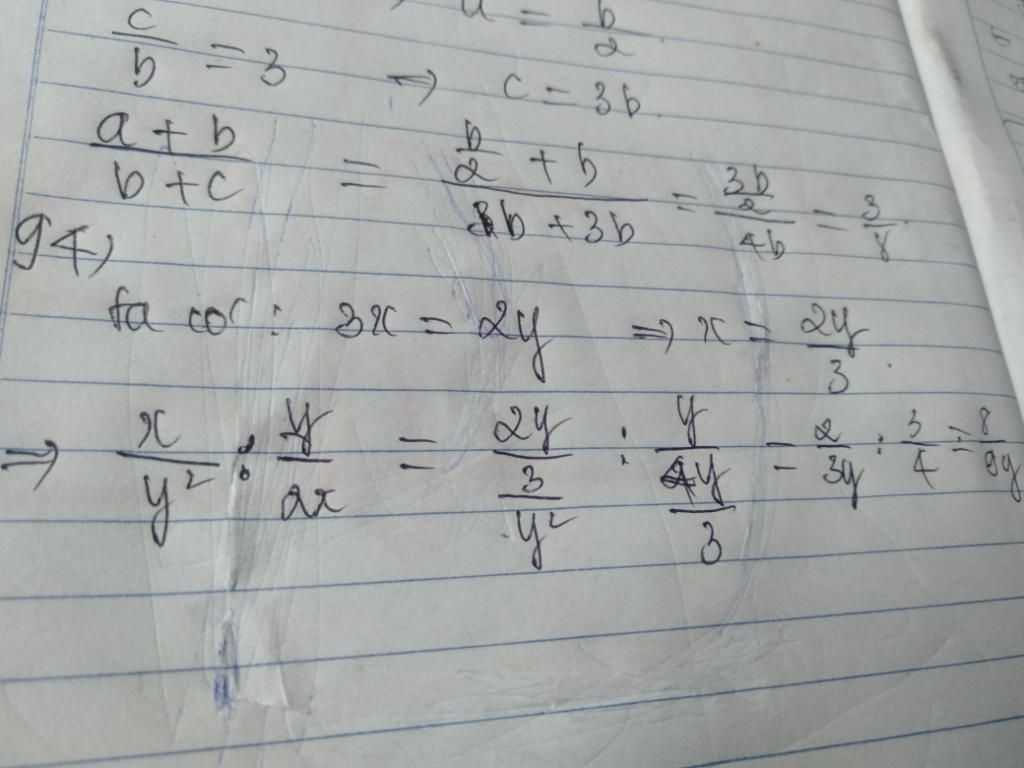 a = b/2
c/b = 3 ⇒ c = 3b
(a + b)/(b + c) = (b/2 + b)/(b + 3b) = (3b/2)/(4b) = 3/8.
94)
Ta có: 3x = 2y ⇒ x = 2y/3.
⇒ x/y² : y/2x = (2y/3)/y² : y/(4y/3) = 2/3y : 3/4 = 8/9y